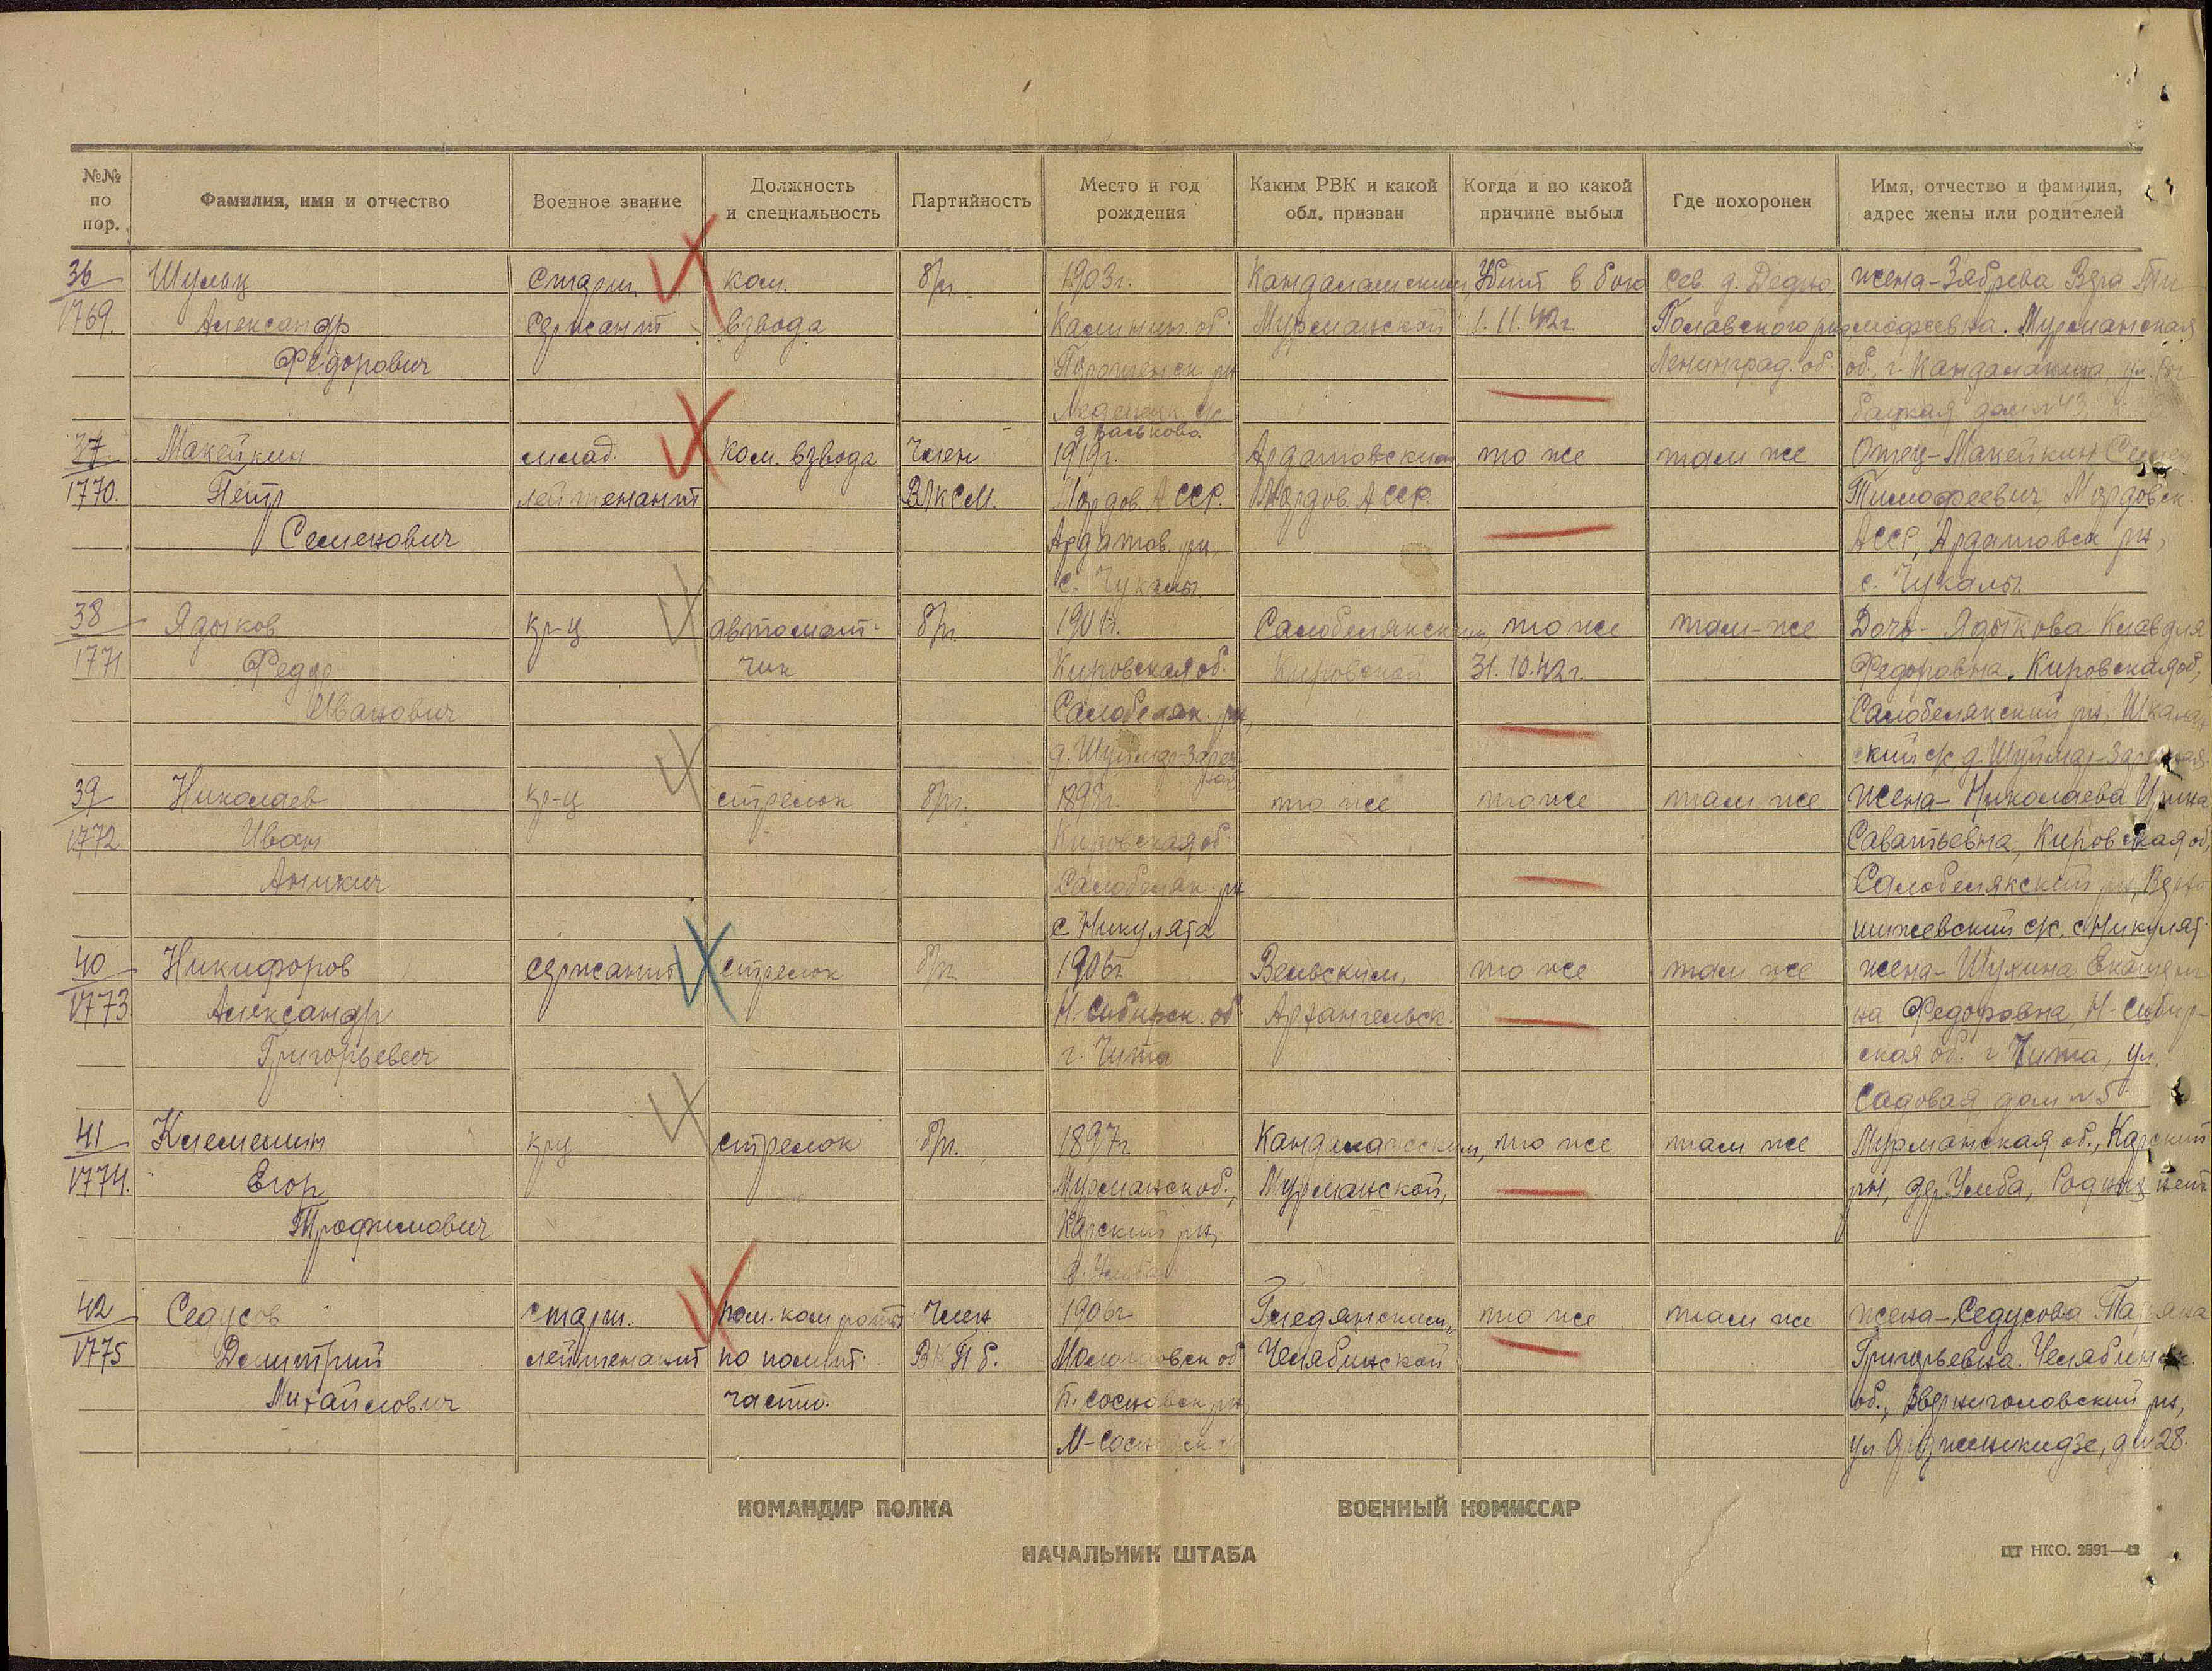 №№ по пор.
Фамилия, имя и отчество
Военное звание
Должность и специальность
Партийность
Место и год рождения
Каким РВК и какой обл. призван
Когда и по какой причине выбыл
Где похоронен
Имя, отчество и фамилия, адрес жены или родителей
36 Шульц старш. ком. б/п. 1903г. Кандалакшским, Убит в бою сев. д. Ведно, жена-Зябрева Вера Ти-
1769. Александр сержант взвода Калинин. об. Мурманской 1.11.42г. Полавского рна, мофеевна. Мурманская
Федорович рн Ленинград. об. об., г. Кандалакша, ул.
д. Васьково. дом №43,
37 Макейкин млад. ком. взвода Член 1919г. Ардатовским то же там же Отец-Макейкин Семен
1770. Петр лейтенант ВЛКСМ. Мордов. АССР. Мордов. АССР. Тимофеевич, Мордовск.
Семенович Ардатов. рн, АССР, Ардатовск рн,
с. Чукалы с. Чукалы.
38 Ядыков кр-ц автомат- б/п. 1901г. Салобелякским, то же там-же Дочь- Ядыкова Клавдия
1771 Федор чик Кировская об. Кировской 31.10.42г. Федоровна. Кировская об,
Иванович Салобеляк. рн, Салобелякский рн,
д. Шуймар-Зареч- ский с/с, д. Шуймар-Заречная.
ная
39 Николаев кр-ц стрелок б/п. то же то же там же жена- Николаева
1772 Иван Кировская об. Саватьевна, Кировская об,
Аникич Салобеляк. рн Салобелякский рн,
с Никулята с/с. с Никулят.
40 Никифоров сержант стрелок б/п. 1906г. Вельским, то же там же жена- Шухина Екатери-
1773 Александр Н-Сибирск. об. Архангельск. на Федоровна, Н-Сибир-
Григорьевич г. Чита ская об. г Чита, ул.
Садовая, дом №5
41 Клементин кр-ц стрелок б/п. 1897г. Кандалакшским, то же там же Мурманская об.,
1774. Егор Мурманск об., Мурманской, рн, дер Умба, Родных нет
Трофимович рн,
д. Умба
42 Седусов старш. пом. ком роты Член 1906г. то же там же жена-Седусова Татьяна
1775 Дмитрий лейтенант по полит. ВКПб. Молотовск об Челябинской Григорьевна. Челябинск.
Михайлович части. Б. Сосновск рн, об., Звериноголовский рн,
ул Орджоникидзе, д №28.
КОМАНДИР ПОЛКА
ВОЕННЫЙ КОМИССАР
НАЧАЛЬНИК ШТАБА
ЦТ НКО. 2591—42